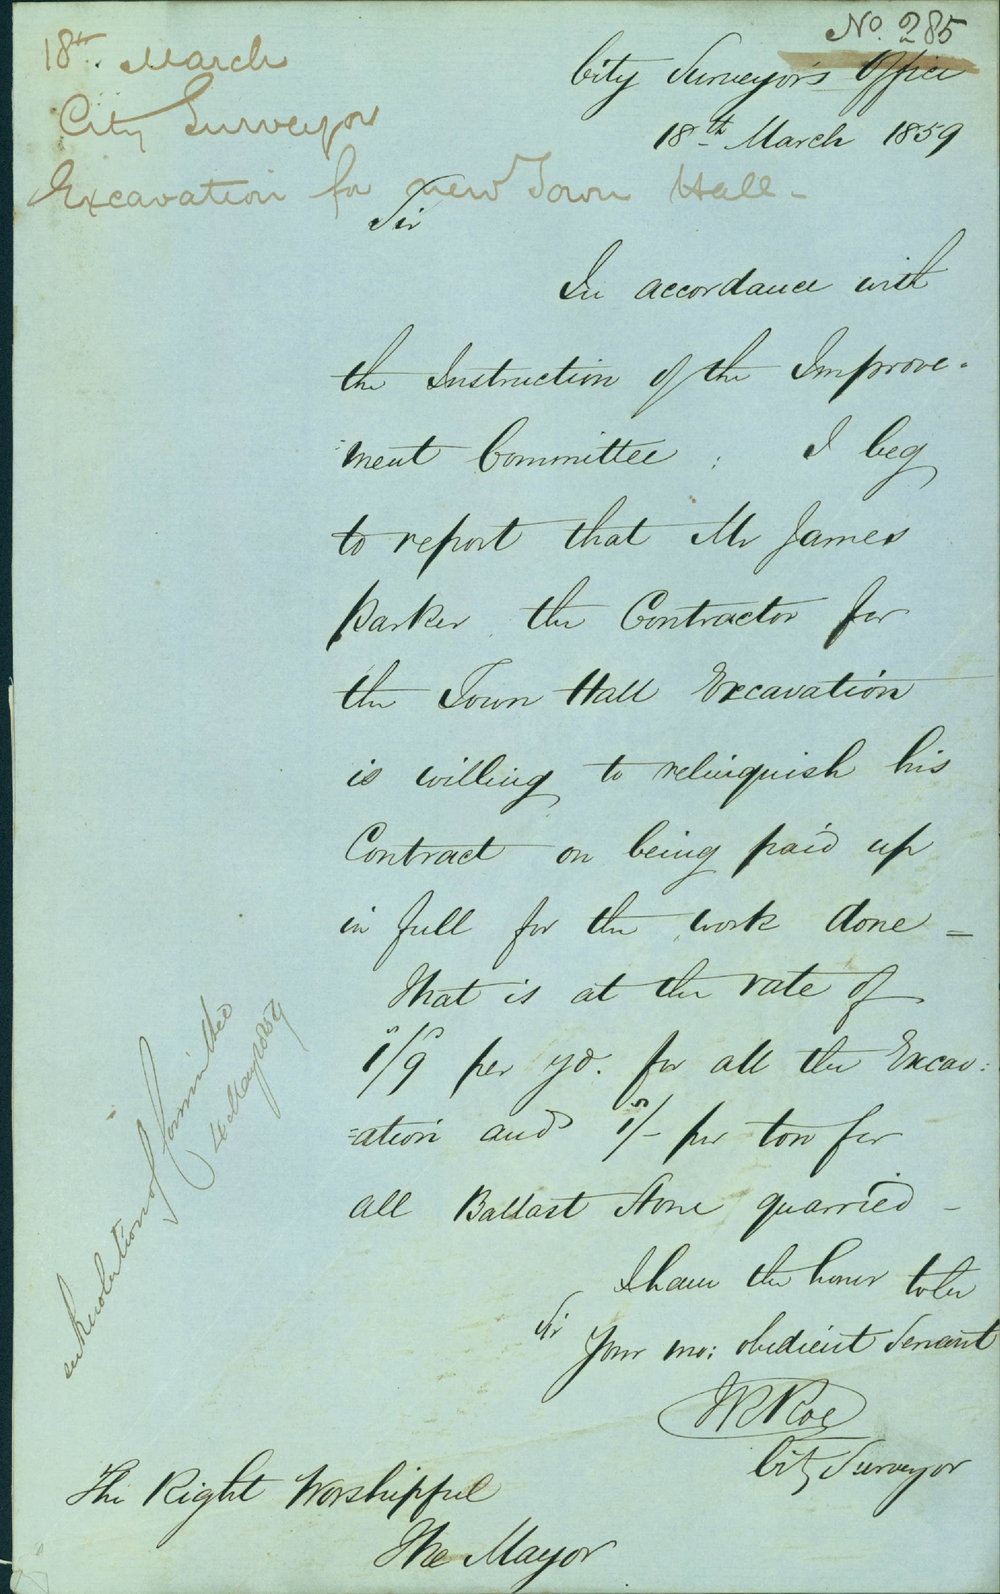 No. 285
18th. March
City Surveyor
Excavation for new Town Hall -
City Surveyor's Office
18th March 1859
Sir
In accordance with
the Instruction of the Improve-
ment Committee : I beg
to report that Mr James
Parker the Contractor for
the Town Hall Excavation
is willing to relinquish his
Contract on being paid up
in full for the work done =
That is at the rate of
1s/9p per yd. for all the Excav:
=ation and 1s/- per ton for
all Ballast Stone quarried -
I have the honor to be
Sir
Your mo: obedient Servant
WR Roe
City Surveyor
The Right Worshipful
The Mayor
see Resolution of Committee
4 May 1859